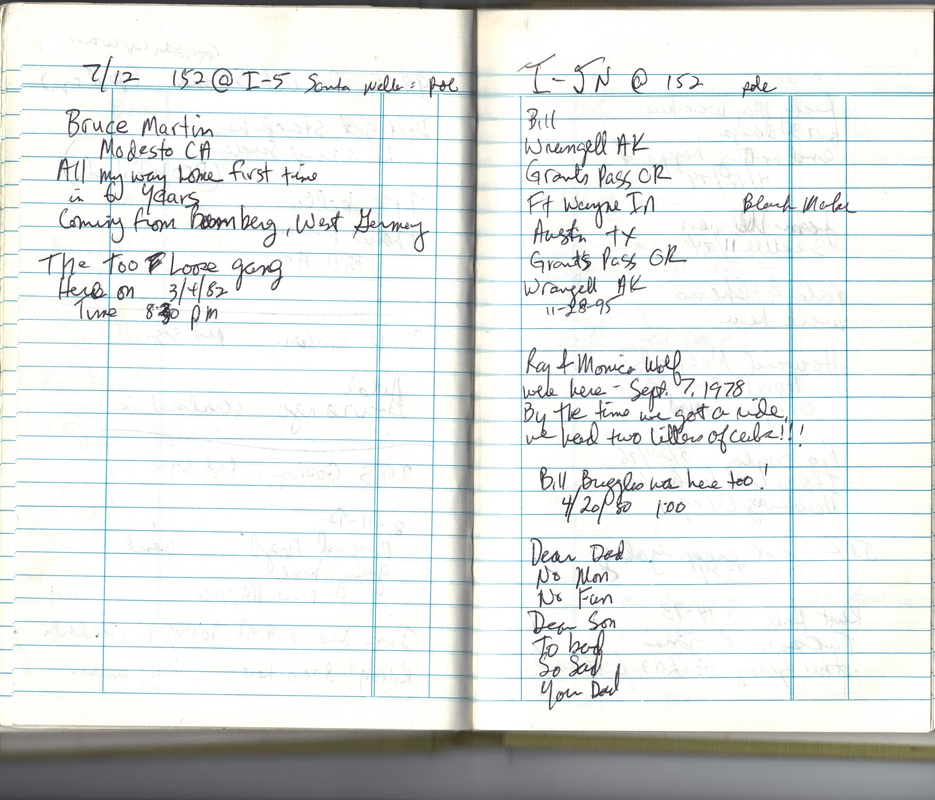 7/12 152 @ I-5 Santa Nella: pole
Bruce Martin
Modesto CA
All my way home first time
in 2 years
Coming from Boomberg, West Germany
The Too Loose gang
Here on 3/4/82
Time 8:30 pm
I-5N @ 152 pole
Bill
Wrangell AK
Grants Pass OR
Ft Wayne In Black Marker
Austin TX
Grants Pass OR
Wrangell AK
11-28-95
Ray & Monica Wolf
were here - Sept. 7, 1978
By the time we got a ride,
we had two litters of cubs!!!
Bill Buggles was here too!
4/20/80 1:00
Dear Dad
No Mon
No Fun
Dear Son
To bad
So Sad
Your Dad